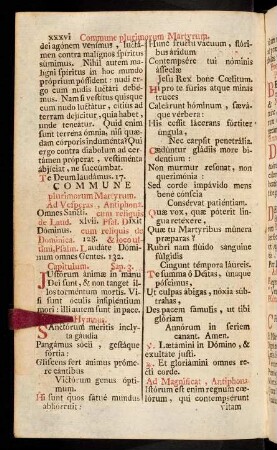 xxxvi Commune plurimorum Martyrum.
dei agónem venimus, luctá-
men contra malignos spíritus
súmimus. Nihil autem ma-
lígni spíritus in hoc mundo
próprium póssident: nudi er-
go cum nudis luctári debé-
mus. Nam si vestítus quisque
cum nudo luctátur, cítius ad
terram dejícitur, quia habet,
unde teneátur. Quid enim
sunt terréna ómnia, nisi quæ-
dam córporis induménta? Qui
ergo contra diábolum ad cer-
támen próperat, vestiménta
abjíciat, ne succúmbat.
Te Deum laudámus. 17.
COMMUNE
plurimorum Martyrum.
Ad Vesperas, Antiphonæ.
Omnes Sancti. cum reliquis
de Laud.
Dóminus. cum reliquis de
Dominica. 128.
Psalm. Laudáte Dómi-
num omnes Gentes. 132.
Capitulum. Sap. 3.
Justórum ánimæ in manu
Dei sunt, & non tanget il-
los torméntum mortis. Vi-
si sunt óculis insipiéntium
mori: illi autem sunt in pace.
Hymnus.
Sanctórum méritis ínclyta
gáudia
Pangámus sócii, gestáque
fórtia:
Glíscens fert ánimus próme-
re cántibus
Victórum genus ópti-
mum.
Hi sunt quos fátue mundus
abhórruit:
Hunc fructu vácuum, flóri-
bus áridum
Contempsére tui nóminis
ássecíæ
Jesu Rex bone Cœlitum.
Hi pro te fúrias atque minis
truces
Calcárunt hóminum, sævá-
que vérbera:
His cessit lácerans fórtiter
úngula,
Nec carpsit penetrália.
Cædúntur gládiis more bi-
déntium:
Non murmur résonat, non
querimónia:
Sed corde impávido mens
bene cónscia
Consérvat patiéntiam.
Quæ vox, quæ póterit lin-
gua retéxere,
Quæ tu Martýribus múnera
præparas?
Rubri nam flúido sánguine
fúlgidis
Cingunt témpora láureis.
Te summa ô Déitas, únáque
póscimus,
Ut culpas ábigas, nóxia súb-
trahas,
Des pacem fámulis, ut tibi
glóriam
Annórum in sériem
canant. Amen.
V. Lætámini in Dómino, &
exultáte justi.
R. Et gloriámini omnes re-
cti corde.
Ad Magnificat, Antiphona.
Istórum est enim regnum cœ-
lórum, qui contempsérunt
vitam